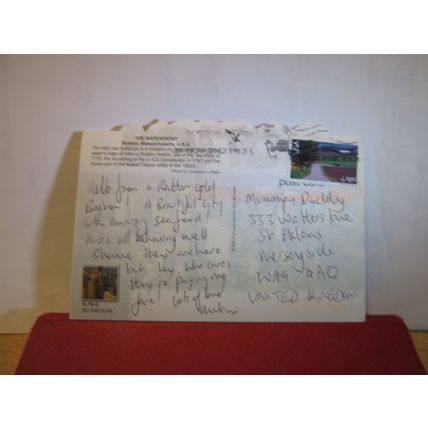 THE WATERFRONT
Boston, Massachusetts, U.S.A.
The high-rise buildings of a modern city
water's edge of historic Boston Harbor, site of the Tea Party of
1773, the launching of the U.S.S. Constitution in 1797 and the
home port of the fastest Clipper ships in the 1850's.
BOSTON
PM 3 L
USA
Hello from a Rather cold
Boston! A Beautiful City
with amazing seafood!
Kids all behaving well
Shame they are here
but hey, who cares
they're paying my
fare! Lots of love
POST CARD
Mummy + Daddy
333 Walters Lane
St Helens
Merseyside
WA9 4AQ
UNITED KINGDOM